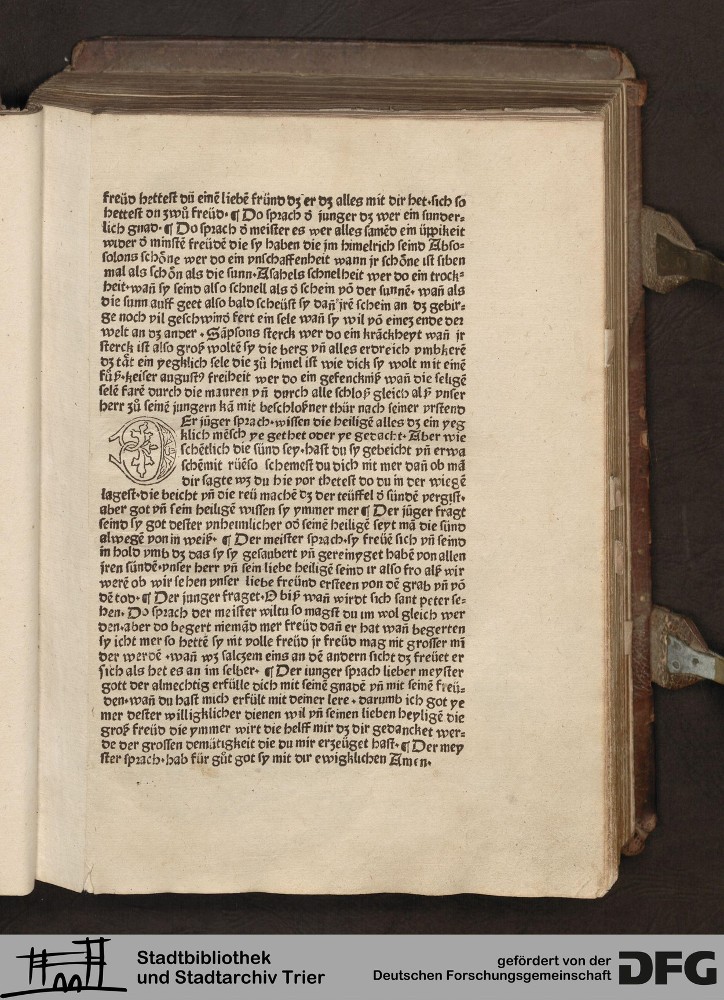 freüd hettest dū einē liebē fründ dʒ er dʒ alles mit dir het·sich so
hettest dn ʒwů freüd·¶ Do sprach ð junger dʒ wer ein sunder⸗
lich gnad·¶ Do sprach ð meister es wer alles samēd ein üppikeit
wider ð minstē freüdē die sy haben die jm himelrich seind Abso⸗
solons schȫne wer do ein vnschaffenheit wann jr schȫne ist siben
mal als schȫn als die sunn·Asahels schnelheit wer do ein trock⸗
heit·wañ sy seind also schnell als ð schein vō der sunnē·wañ als
die sunn auff geet also bald scheüst sy dañ jrē schein an dʒ gebir⸗
ge noch vil geschwind fert ein sele wañ sy wil vō eineʒ ende der
welt an dʒ ander·Sāpsons sterck wer do ein krāckheyt wañ jr
sterck ist also groß woltē sy die berg vñ alles erdreich vmbkerē
dʒ tät ein yegklich sele die zů himel ist wie dick sy wolt mit einē
fůß·keiser august⁹ freiheit wer do ein gefencknīß wañ die seligē
selē farē durch die mauren vñ durch alle schloß gleich alß vnser
herr zů seinē jungern kā mit beschloßner thür nach seiner vrstend
DEr jüger sprach·wissen die heiligē alles dʒ ein yeg
klich mēsch ye gethet oder ye gedacht·Aber wie
schētlich die sünd sey·hast du sy gebeicht vñ erwa
schēmit rüēso schemest du dich nit mer dañ ob mā
dir sagte wʒ du hie vor thetest do du in der wiegē
lagest·die beicht vñ die reü machē dʒ der teüffel ð sündē vergist·
aber got vñ sein heiligē wissen sy ymmer mer ¶ Der jüger fragt
seind sy got dester vnheimlicher od seinē heiligē seyt mā die sünd
alwegē von in weiß·¶ Der meister sprach·sy freüē sich vñ seind
in hold vmb dʒ das sy sy gesaubert vñ gereinyget habē von allen
jren sündē·vnser herr vñ sein liebe heiligē seind ir also fro alß wir
werē ob wir sehen vnser liebe freünd ersteen von dē grab vñ vō
dē tod·¶ Der junger fraget·O biß wañ wirdt sich sant peter se⸗
hen·Do sprach der meister wiltu so magst du im wol gleich wer
den·aber do begert niemād mer freüd dañ er hat wañ begerten
sy icht mer so hettē sy nit volle freüd jr freüd mag nit grosser mī
der werdē·wañ wʒ salcʒem eins an dē andern sicht dʒ freüet er
sich als het es an im selber·¶ Der iunger sprach lieber meyster
gott der almechtig erfülle dich mit seinē gnadē vñ mit seinē freü⸗
den·wañ du hast mich erfült mit deiner lere·darumb ich got ye
mer dester willigklicher dienen wil vñ seinen lieben heyligē die
groß freüd die ymmer wirt die helff mir dʒ dir gedancket wer⸗
de der grossen demütigkeit die du mir erzeüget hast·¶ Der mey
ster sprach·hab für gůt got sy mit dir ewigklichen Amen·
Stadtbibliothek
und Stadtarchiv Trier
gefördert von der
Deutschen Forschungsgemeinschaft
DFG